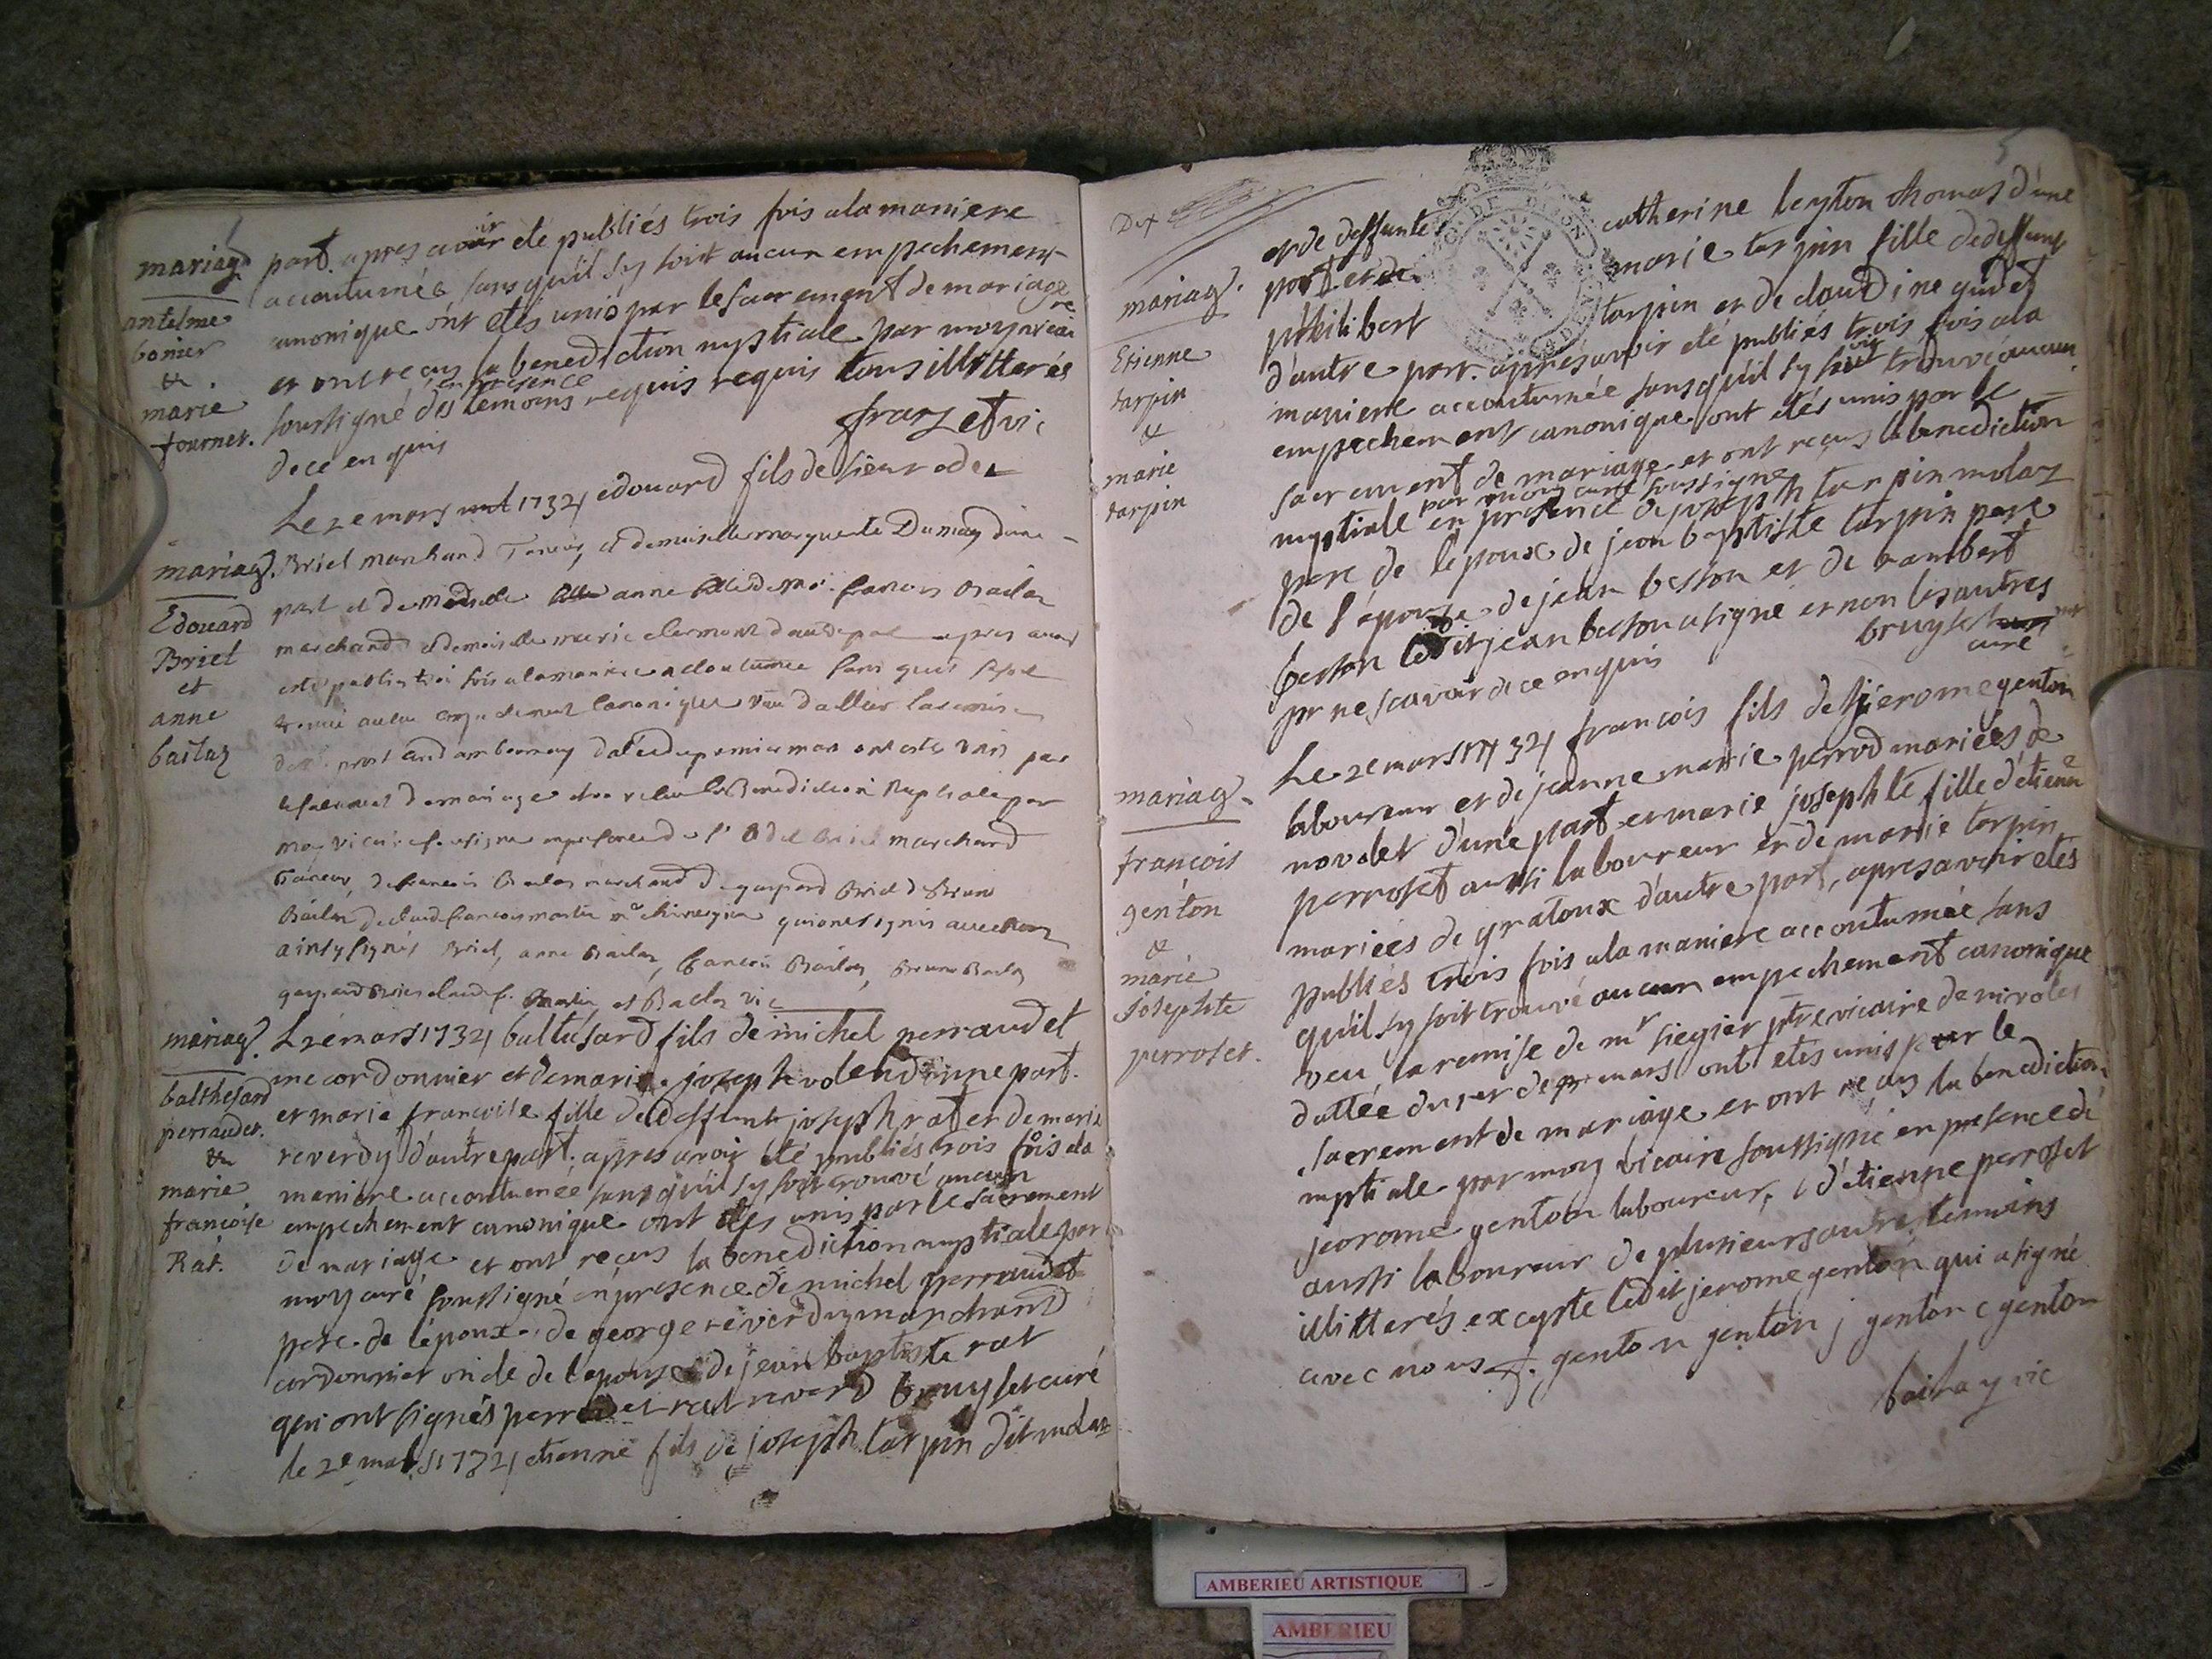 mariag
antelme
bonier
&
marie
fournet.
part. apres avoir été publiés trois fois ala maniere
accoutumée sans qu'il sy soit aucun empechement
canonique ont etés unis par le sacrement de mariage
et ont reçus la benediction nuptiale par moy vicaire
soussigné en presence des temoins requis requis tous illitterés
de ce enquis
vic
mariag.
Edouard
Briel
et
anne
bailaz
Le 2e mars 1732, edouard fils de sieur odet
Briel marchand et demoiselle marguerite Dumay d'une
part et demoiselle anne fille de francois Bailaz
marchand et demoiselle marie clermont d'autre part apres avoir
esté publiés trois fois ala maniere accoutumée sans qu'il
trouvé aucun empechement canonique
ambournay du premier mars ont estés unis par
le sacrement de mariage et la Benediction Nuptiale par
moy vicaire soussigné en presence de Briel marchand
de francois Bailaz marchand de gaspard Briel de Bruno
Bailaz de claude francois martin chirurgien qui ont signés avec
ainsy signés Briel, anne Bailaz, francois Bailaz, Bruno Bailaz
gaspard Briel claude f. martin et Bailaz vic
mariag.
balthesard
perraudet.
&
marie
francoise
Rat.
L 2e mars 1732, baltesard fils de michel perraudet
me cordonnier et de marie josephe d'une part.
et marie francoise fille de deffunt joseph rat et de marie
reverdy d'autre part. apres avoir été publiés trois fois ala
maniere accoutumée sans qu'il sy soit trouvé aucun
empechement canonique ont etés unis par le sacrement
de mariage et ont reçus la benediction nuptiale par
moy curé soussigné en presence de michel perraudet
pere de l'époux, de george reverdy marchand
cordonnier oncle de l'epouse de jean baptiste rat
qui ont signés perraudet rat reverd bruyset curé
le 2e mars 1732, etienne fils de joseph tarpin dit molaz
5
mariag.
Etienne
tarpin
&
marie
tarpin
et de deffunte catherine leyton thomas d'une
part et de marie tarpin fille de deffunt
philibert tarpin et de claudine gudet
d'autre part. apres avoir été publiés trois fois ala
maniere accoutumée sans qu'il sy soit trouvé aucun
empechement canonique ont etés unis par le
sacrement de mariage et ont reçus la benediction
nuptiale par moy curé soussigné en presence de joseph tarpin molaz
pere de l'epoux de jean baptiste tarpin pere
de l'épouse de jean beston et de rambert
beston ledit jean beston a signé et non les autres
pr ne scavoir de ce enquis bruyset
curé
mariag.
francois
genton
&
marie
josephte
perroset.
Le 2e mars 1732, francois fils de jerome genton
laboureur et de jeanne marie perrod mariées de
novolet d'une part et marie josephte fille d'étienne
perroset aussi laboureur et de marie tarpin
mariées de gratoux d'autre part, apres avoir etés
publiés trois fois ala maniere accoutumée sans
qu'il sy soit trouvé aucun empechement canonique
veu la remise de mr siegier ptre vicaire de nivoles
dattée du 1er de mars ont etés unis par le
sacrement de mariage et ont reçus la benediction
nuptiale par moy vicaire soussigné en presence de
jerome genton laboureur, d'étienne perroset
aussi laboureur de plusieurs autres temoins
illitterés excepte ledit jerome genton qui a signé
avec nous f. genton genton j genton c genton
bailay vic
AMBERIEU ARTISTIQUE
AMBERIEU